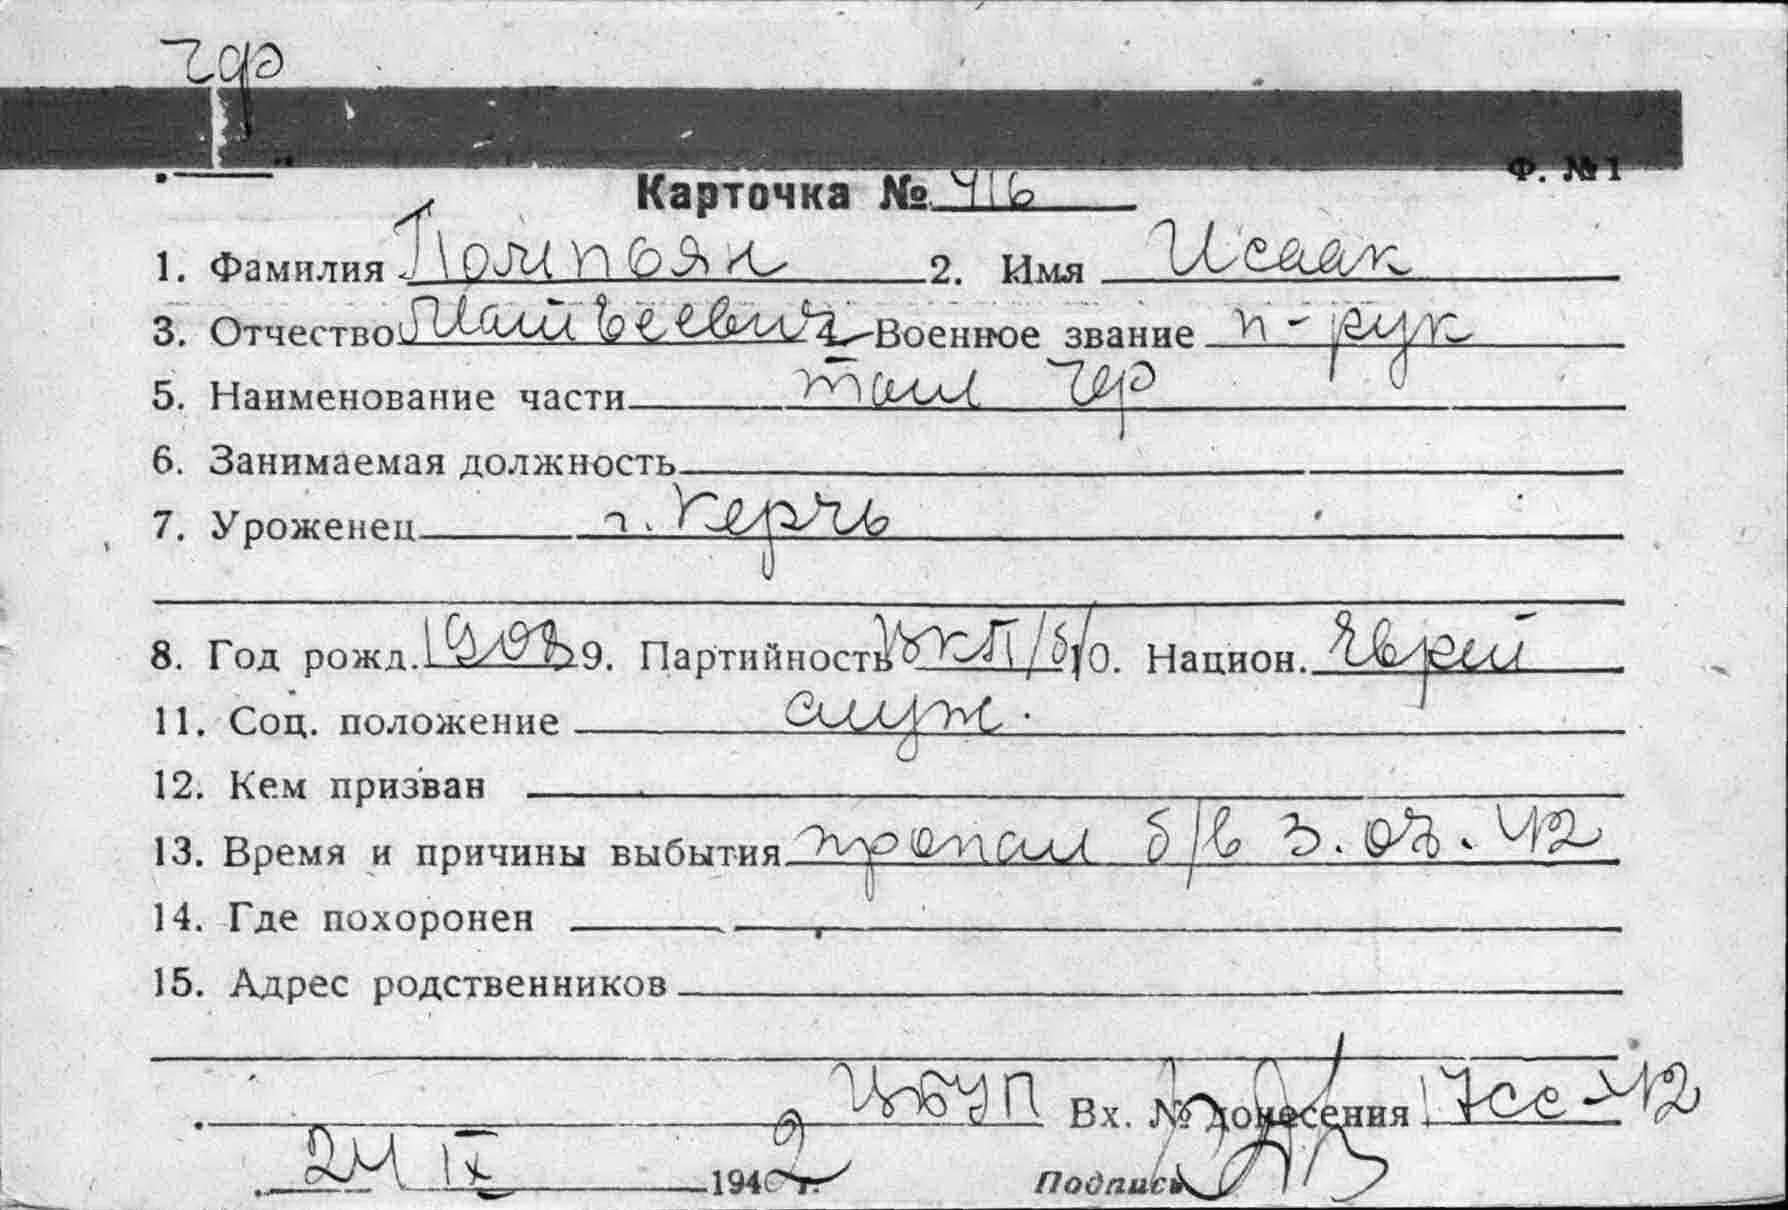 чф
Ф. №1
Карточка № 416
1. Фамилия 2. Имя Исаак
3. Отчество Матвеевич Военное звание п-рук
5. Наименование части чф
6. Занимаемая должность
7. Уроженец г. Керчь
8. Год рожд. 1908 9. Партийность ВКП/б/ 10. Национ. Еврей
11. Соц. положение служ.
12. Кем призван
13. Время и причины выбытия пропал б/в 3.07.42
14. Где похоронен
15. Адрес родственников
ЦБУП Вх. № донесения 17сс-42
24 IX 1942 г. Подпись